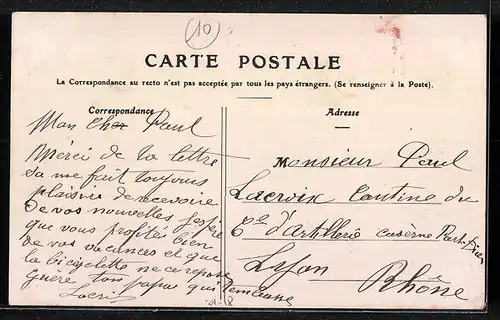 10
CARTE POSTALE
La Correspondance au recto n'est pas acceptée par tous les pays étrangers. (Se renseigner à la Poste).
Correspondance
Adresse
Mon cher Paul
Merci de ta lettre
sa me fait toujours
plaisire de recevoire
de vos nouvelles j'espère
que vous profités bien
de vos vacances et que
la bicyclette ne ce repose
guère ton papas qui t'embrasse
Lacroix
Monsieur Paul
Lacroix Cantine du
d'artillerie caserne Part-Dieu
Lyon
Rhône